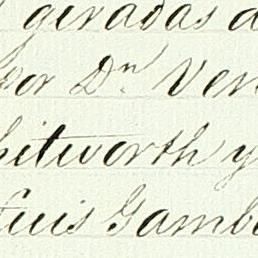 geradas
por Dn Ven
hitworth y
Luis Gamb